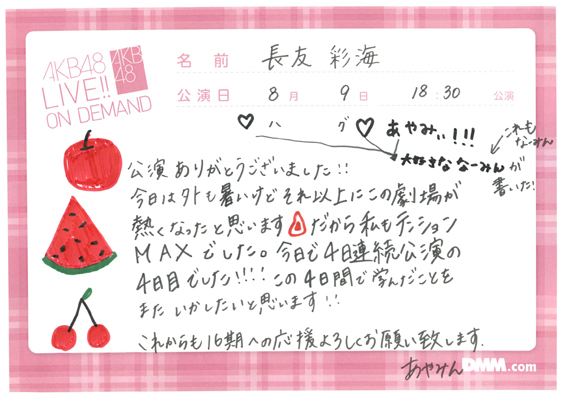 AKB48
LIVE!!
ON DEMAND
AKB
48
名前 長友 彩海
公演日 8月 9日 18:30 公演
♡ハグ♡
あやみぃ!!!
大好きななーみんが
書いた!
これも
なーみん
公演ありがとうございました!!
今日は外も暑いけどそれ以上にこの劇場が
熱くなったと思います だから私もテンション
MAXでした。今日で4日連続公演の
4日目でした!!!! この4日間で学んだことを
またいかしたいと思います!!
これからも16期への応援よろしくお願い致します.
あやみん
DMM.com